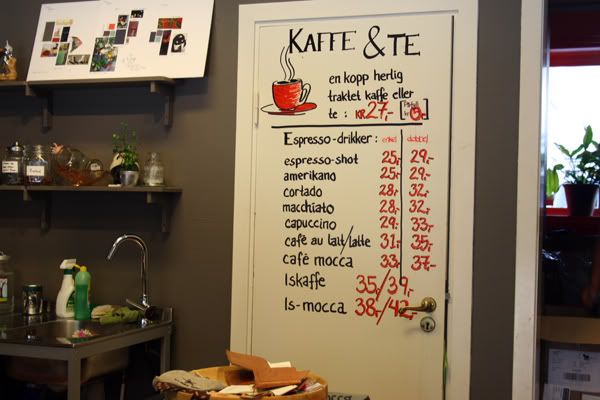 KAFFE & TE
en kopp herlig
traktet kaffe eller
te : KR 27,-
Espresso-drikker: enkel dobbel
espresso-shot 25,- 29,-
amerikano 25,- 29,-
cortado 28,- 32,-
macchiato 28,- 32,-
capuccino 29,- 33,-
café au lait/latte 31,- 35,-
café mocca 33,- 37,-
Iskaffe 35,-/39,-
Is-mocca 38,-/42,-